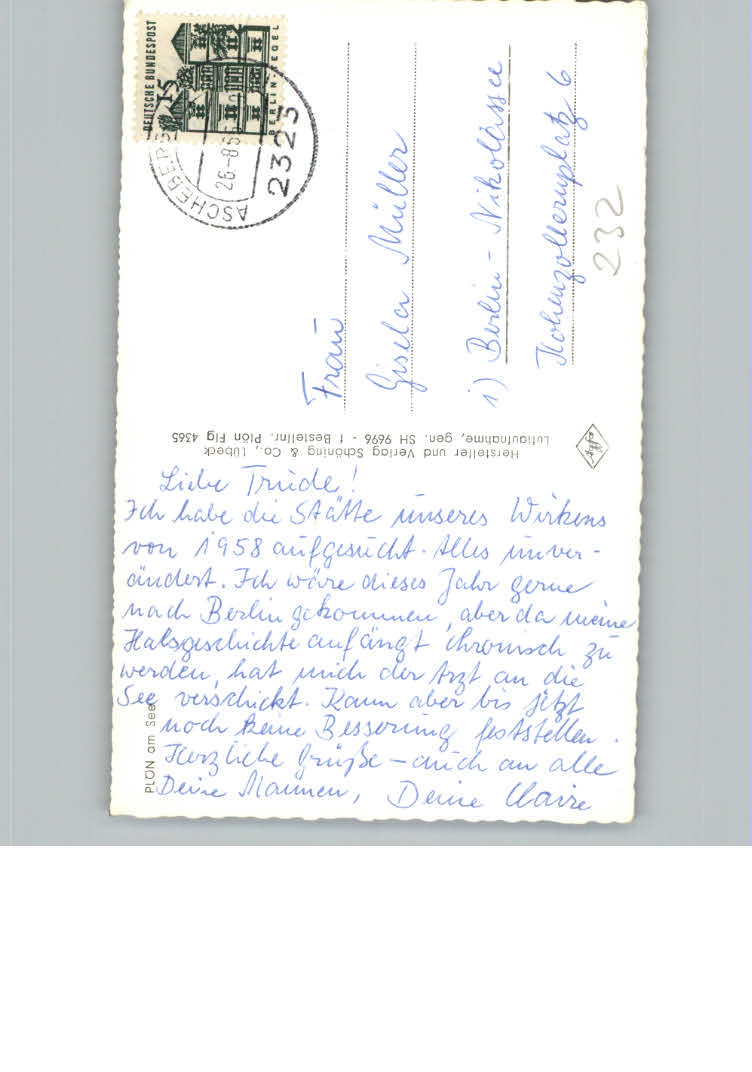 DEUTSCHE BUNDESPOST
15
BERLIN-TEGEL
ASCHEBERG
26-8.65
2323
Frau
Gisela Müller
1) Berlin - Nikolassee
Hohenzollernplatz 6
232
Hersteller und Verlag Schöning & Co., Lübeck
Luftaufnahme, gen. SH 9696 - 1 Bestellnr. Plön Flg 4365
Agfa
PLÖN am See
Liebe Trude!
Ich habe die Stätte unseres Wirkens
von 1958 aufgesucht. Alles unver-
ändert. Ich wäre dieses Jahr gerne
nach Berlin gekommen, aber da meine
Halsgeschichte anfängt chronisch zu
werden, hat mich der Arzt an die
See verschickt. Kann aber bis jetzt
noch keine Besserung feststellen.
Herzliche Grüße - auch an alle
Deine Mannen, Deine Claire